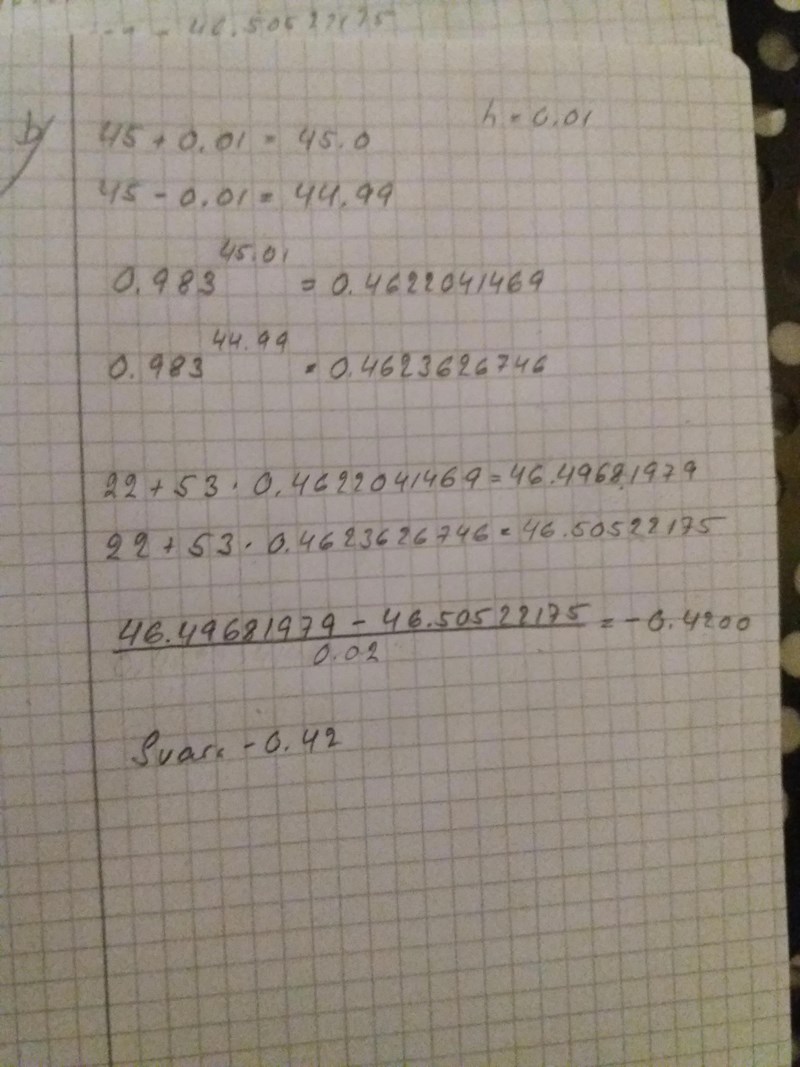 46.50522175
b) 45 + 0.01 = 45.0 h = 0.01
45 - 0.01 = 44.99
0.983^45.01 = 0.4622041469
0.983^44.99 = 0.4623626746
22 + 53 · 0.4622041469 = 46.49681979
22 + 53 · 0.4623626746 = 46.50522175
46.49681979 - 46.50522175 = -0.4200
0.02
Svar: -0.42